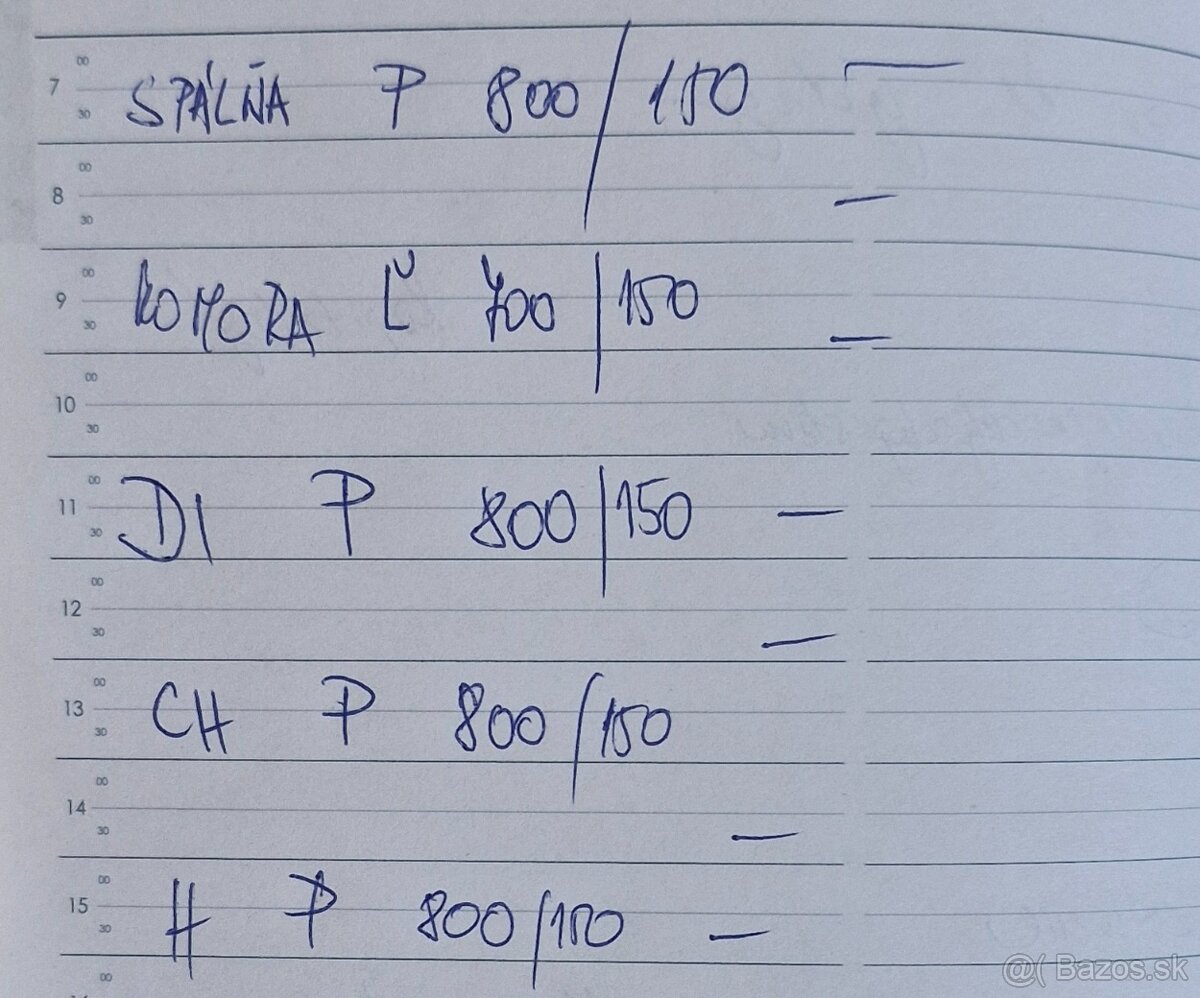 00
7 SPÁLŇA P 800/150
30
00
8
30
00
9 KOMORA Ľ 700/150
30
00
10
30
00
11 DI P 800/150
30
00
12
30
00
13 CH P 800/150
30
00
14
30
00
15 H P 800/150
30
00
@( Bazos.sk